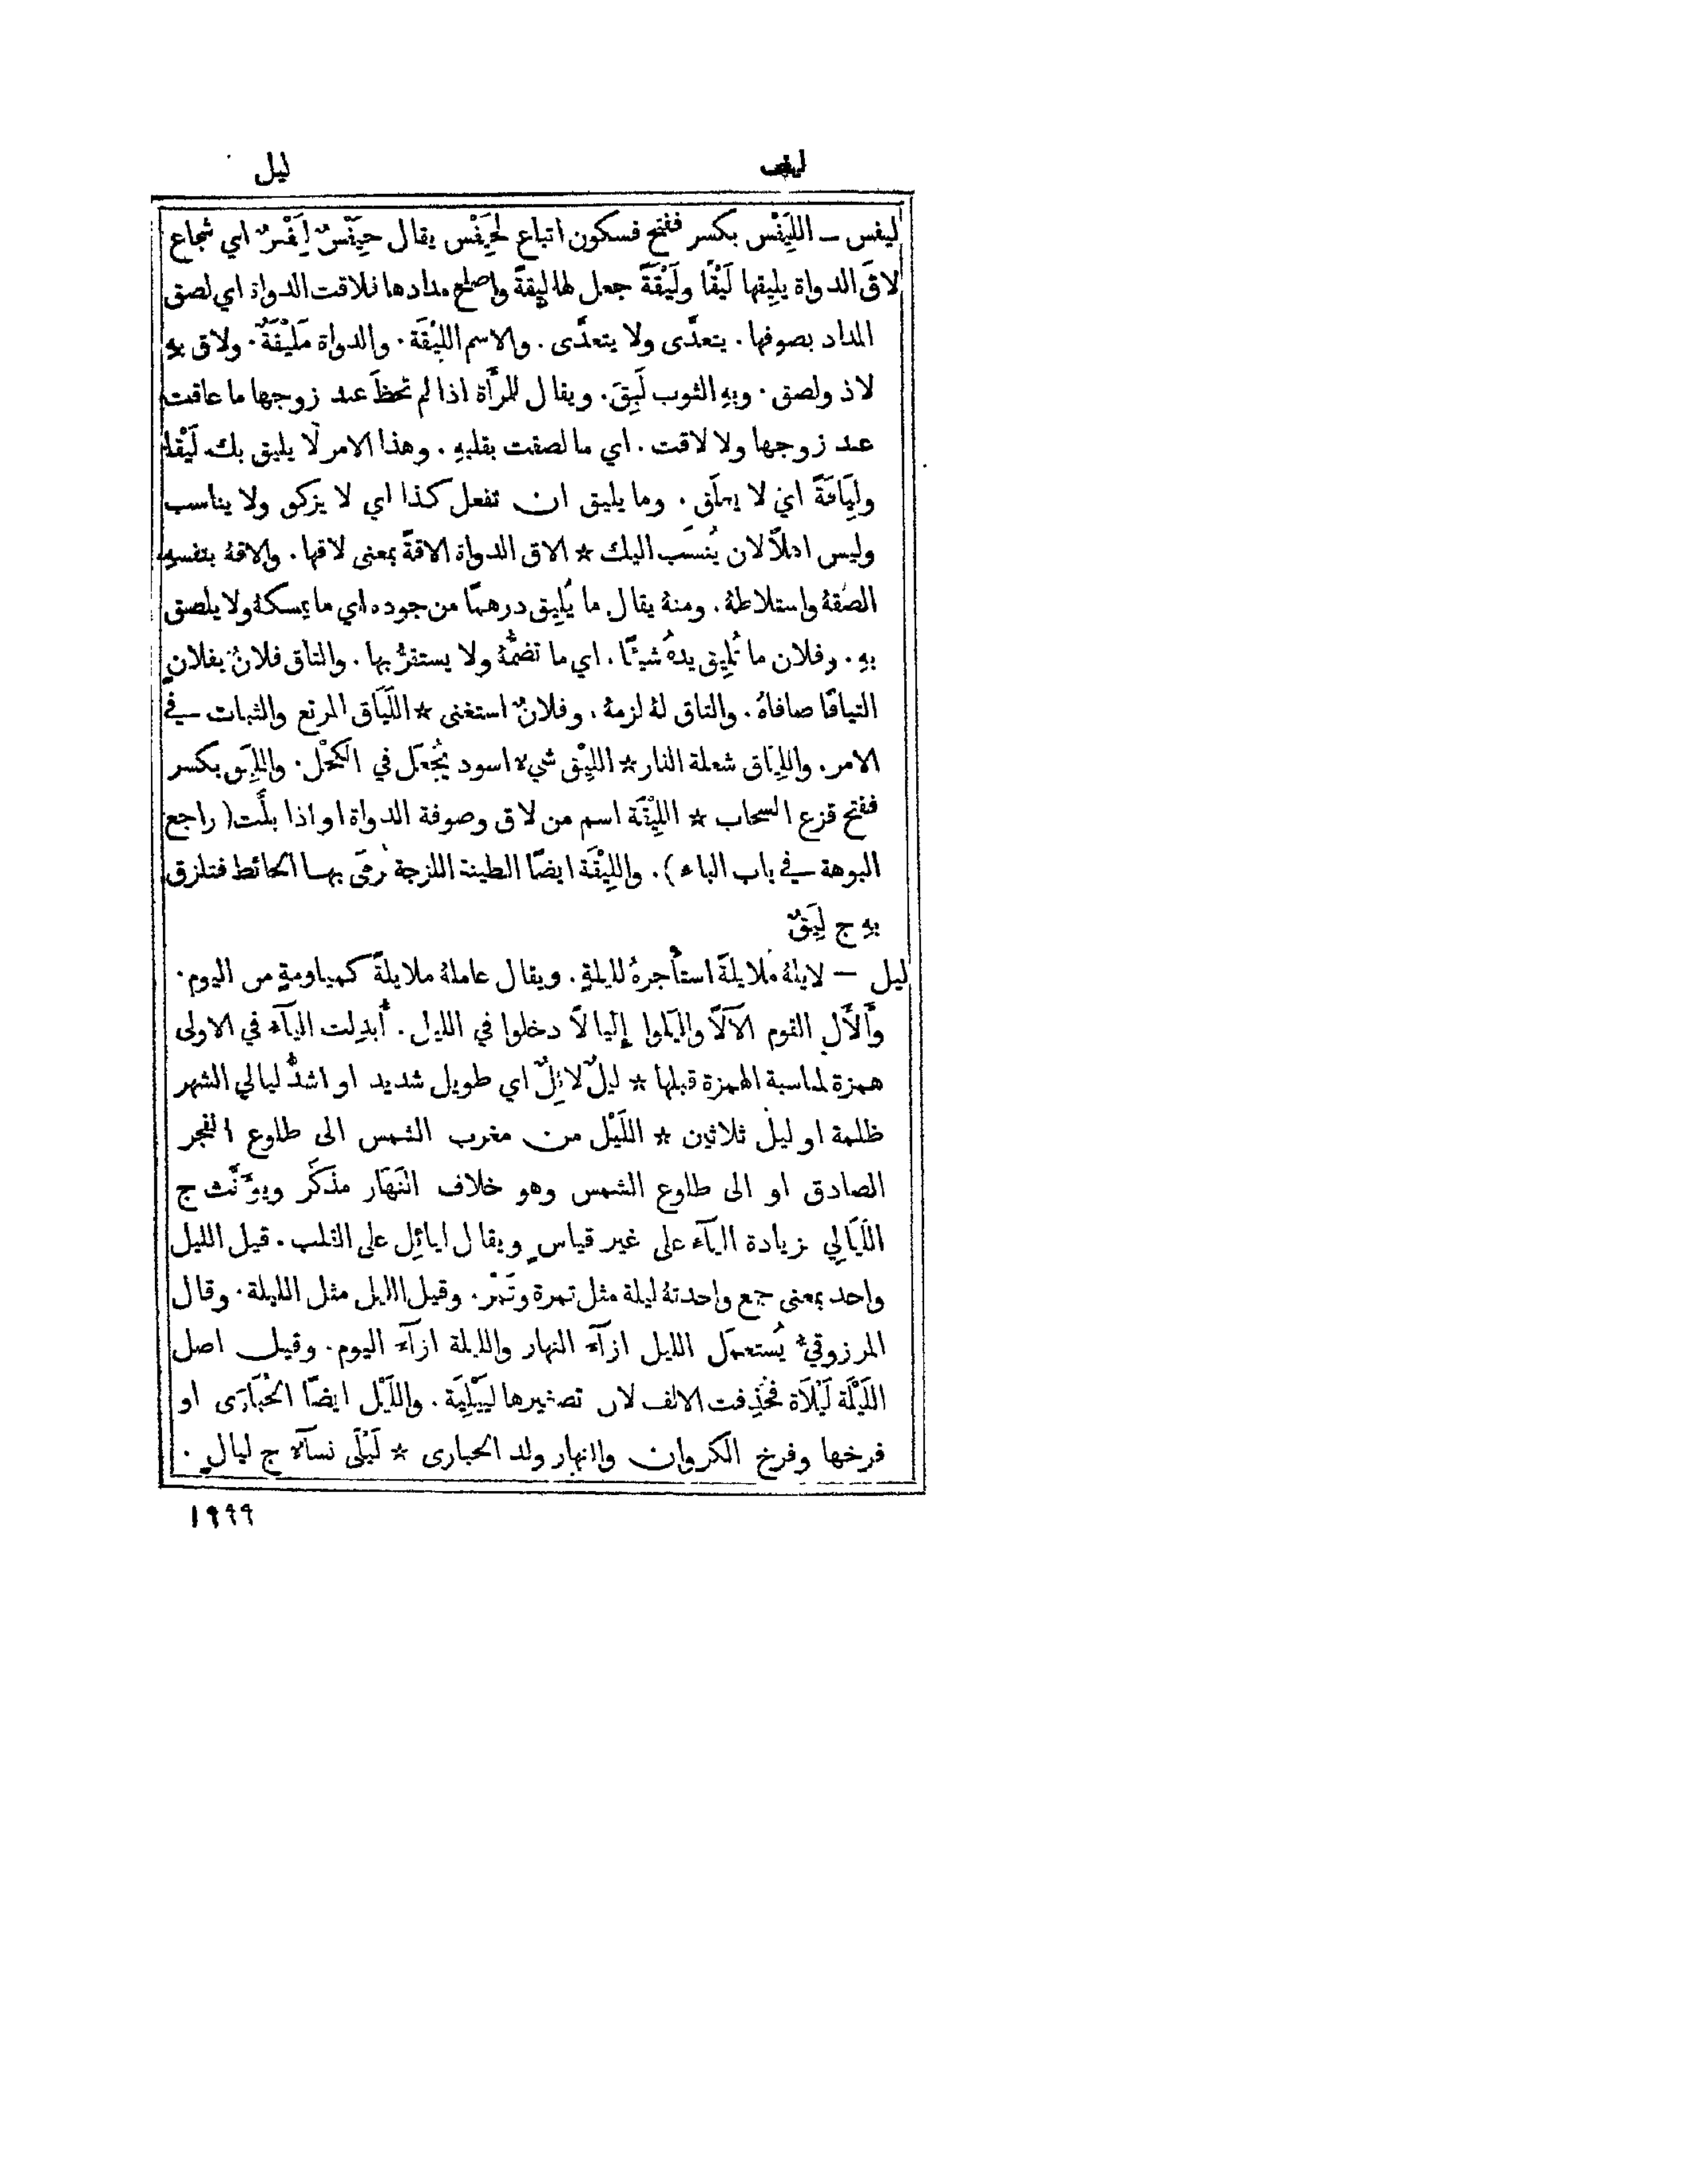 ليف ليل
ليفس — اللِيَفْس بكسر ففتح فسكون اتباع لحِيَفْس يقال حِيَفْسٌ لِيَفْسٌ اي شجاع
لاقَ الدواة يليقها لَيْقًا ولَيْقَةً جعل لها ليقةً واصلح مدادها فلاقت الدواة اي لصق
المداد بصوفها. يتعدَّى ولا يتعدَّى. والاسم اللِيْقَة. والدواة مَلِيْقَةٌ. ولاق بهِ
لاذ ولصق. وبهِ الثوب لَبِقَ. ويقال للمرأَة اذا لم تحظَ عند زوجها ما عاقت
عند زوجها ولا لاقت. اي ما لصقت بقلبهِ. وهذا الامر لا يليق بك لَيْقًا
ولِيَاقَةً اي لا يعلَق. وما يليق ان تفعل كذا اي لا يزكو ولا يناسب
وليس اهلاً لان يُنسَب اليك ☆ الاق الدواة الاقةً بمعنى لاقها. والاقهُ بنفسهِ
الصقهُ واستلاطهُ. ومنهُ يقال ما يُلِيق درهمًا من جوده اي ما يمسكهُ ولا يلصق
بهِ. وفلان ما تُلِيق يدهُ شيئًا. اي ما تضمُّهُ ولا يستقرُّ بها. والتاق فلانٌ بفلانٍ
التياقًا صافاهُ. والتاق لهُ لزمهُ. وفلانٌ استغنى ☆ اللَيَاق المرتع والثبات في
الامر. واللِيَاق شعلة النار ☆ اللِيْق شيء اسود يُجْعَل في الكُحْل. واللِيَق بكسر
ففتح قزع السحاب ☆ اللِيْقَة اسم من لاق وصوفة الدواة او اذا بلَّت (راجع
البوهة في باب الباء). واللِيْقَة ايضًا الطينة اللزجة يُرمَى بها الحائط فتلزق
بهِ ج لِيَقٌ
ليل — لايلهُ مُلايلةً استأجرهُ لليلةٍ. ويقال عاملهُ ملايلةً كمياومةٍ من اليوم.
وأَلأَل القوم الآلاً والَيَلوا إِلْيالاً دخلوا في الليل. أُبدِلت اليآء في الاولى
همزة لمناسبة الهمزة قبلها ☆ ليلٌ لائِلٌ اي طويل شديد او اشدُّ ليالي الشهر
ظلمة او ليل ثلاثين ☆ اللَيْل من مغرب الشمس الى طلوع الفجر
الصادق او الى طلوع الشمس وهو خلاف النَهَار مذكَّر ويؤَنَّث ج
اللَيَالِي بزيادة اليآء على غير قياسٍ ويقال ليائِل على القلب. قيل الليل
واحد بمعنى جمع واحدتهُ ليلة مثل تمرة وتَمْر. وقيل الليل مثل الليلة. وقال
المرزوقيُّ يُستعمَل الليل ازآءَ النهار والليلة ازآءَ اليوم. وقيل اصل
اللَيْلَة لَيْلَاة فحُذِفت الالف لان تصغيرها لُيَيْلِيَة. واللَيْل ايضًا الحُبَارَى او
فرخها وفرخ الكروان والنهار ولد الحبارى ☆ لَيْلَى نسآء ج ليالٍ.
١٩٩٩